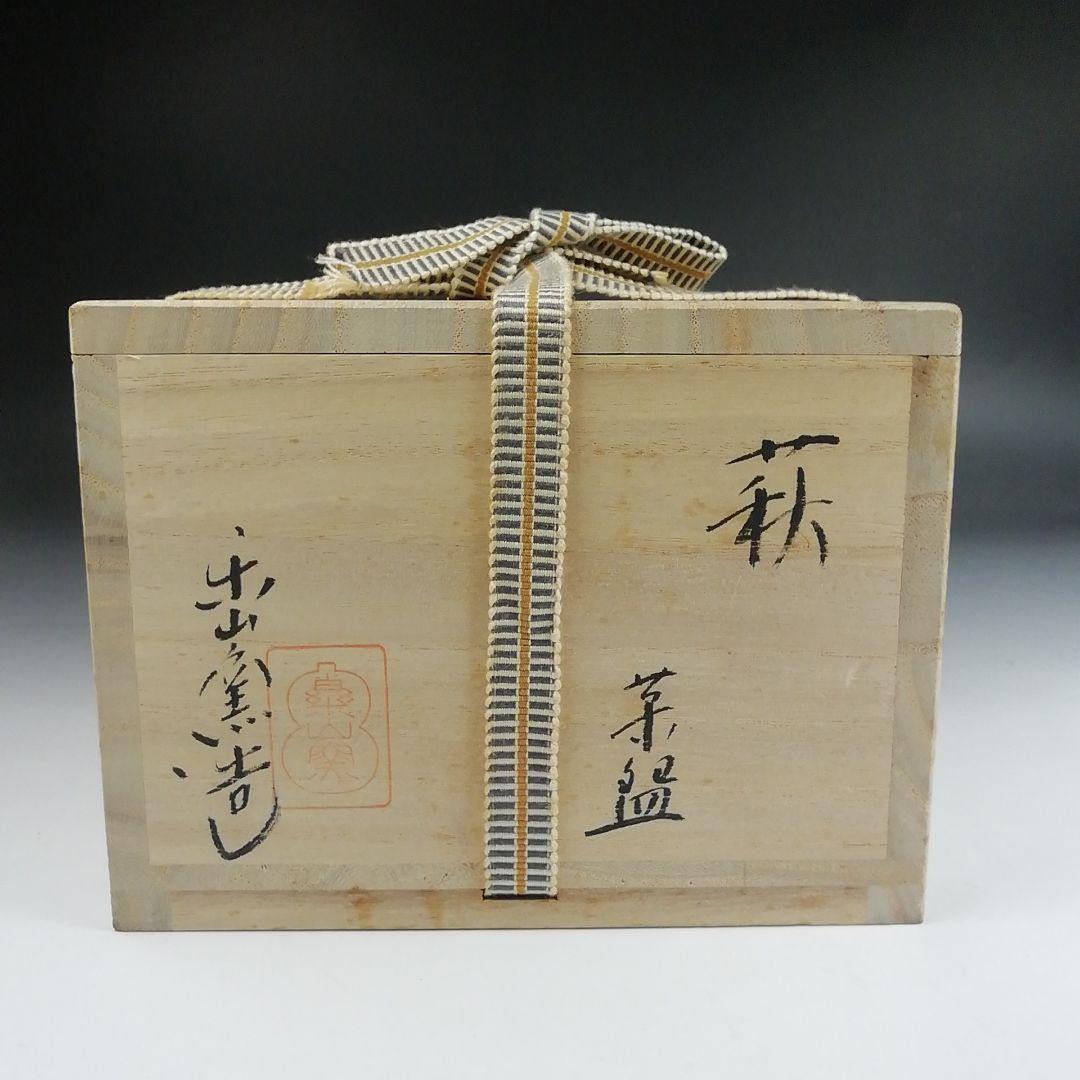 萩
茶盌
泉山窯造
泉山窯